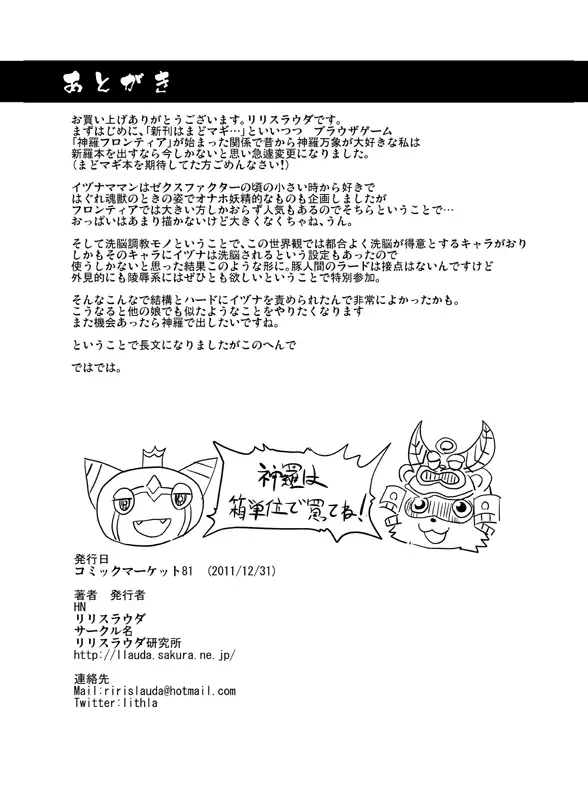 あとがき
お買い上げありがとうございます。リリスラウダです。
まずはじめに、「新刊はまどマギ…」といいつつ　ブラウザゲーム
「神羅フロンティア」が始まった関係で昔から神羅万象が大好きな私は
新羅本を出すなら今しかないと思い急遽変更になりました。
（まどマギ本を期待してた方ごめんなさい！）
イヅナママンはゼクスファクターの頃の小さい時から好きで
はぐれ魂獣のときの姿でオナホ妖精的なものも企画しましたが
フロンティアでは大きい方しかおらず人気もあるのでそちらということで…
おっぱいはあまり描かないけど大きくなくちゃね、うん。
そして洗脳調教モノということで、この世界観では都合よく洗脳が得意とするキャラがおり
しかもそのキャラにイヅナは洗脳されるという設定もあったので
使うしかないと思った結果このような形に。豚人間のラードは接点はないんですけど
外見的にも陵辱系にはぜひとも欲しいということで特別参加。
そんなこんなで結構とハードにイヅナを責められたんで非常によかったかも。
こうなると他の娘でも似たようなことをやりたくなります
また機会あったら神羅で出したいですね。
ということで長文になりましたがこのへんで
ではでは。
神羅は
箱単位で買ってね！
発行日
コミックマーケット81　（2011/12/31）
著者　発行者
HN
リリスラウダ
サークル名
リリスラウダ研究所
http://llauda.sakura.ne.jp/
連絡先
Mail:ririslauda@hotmail.com
Twitter:lithla